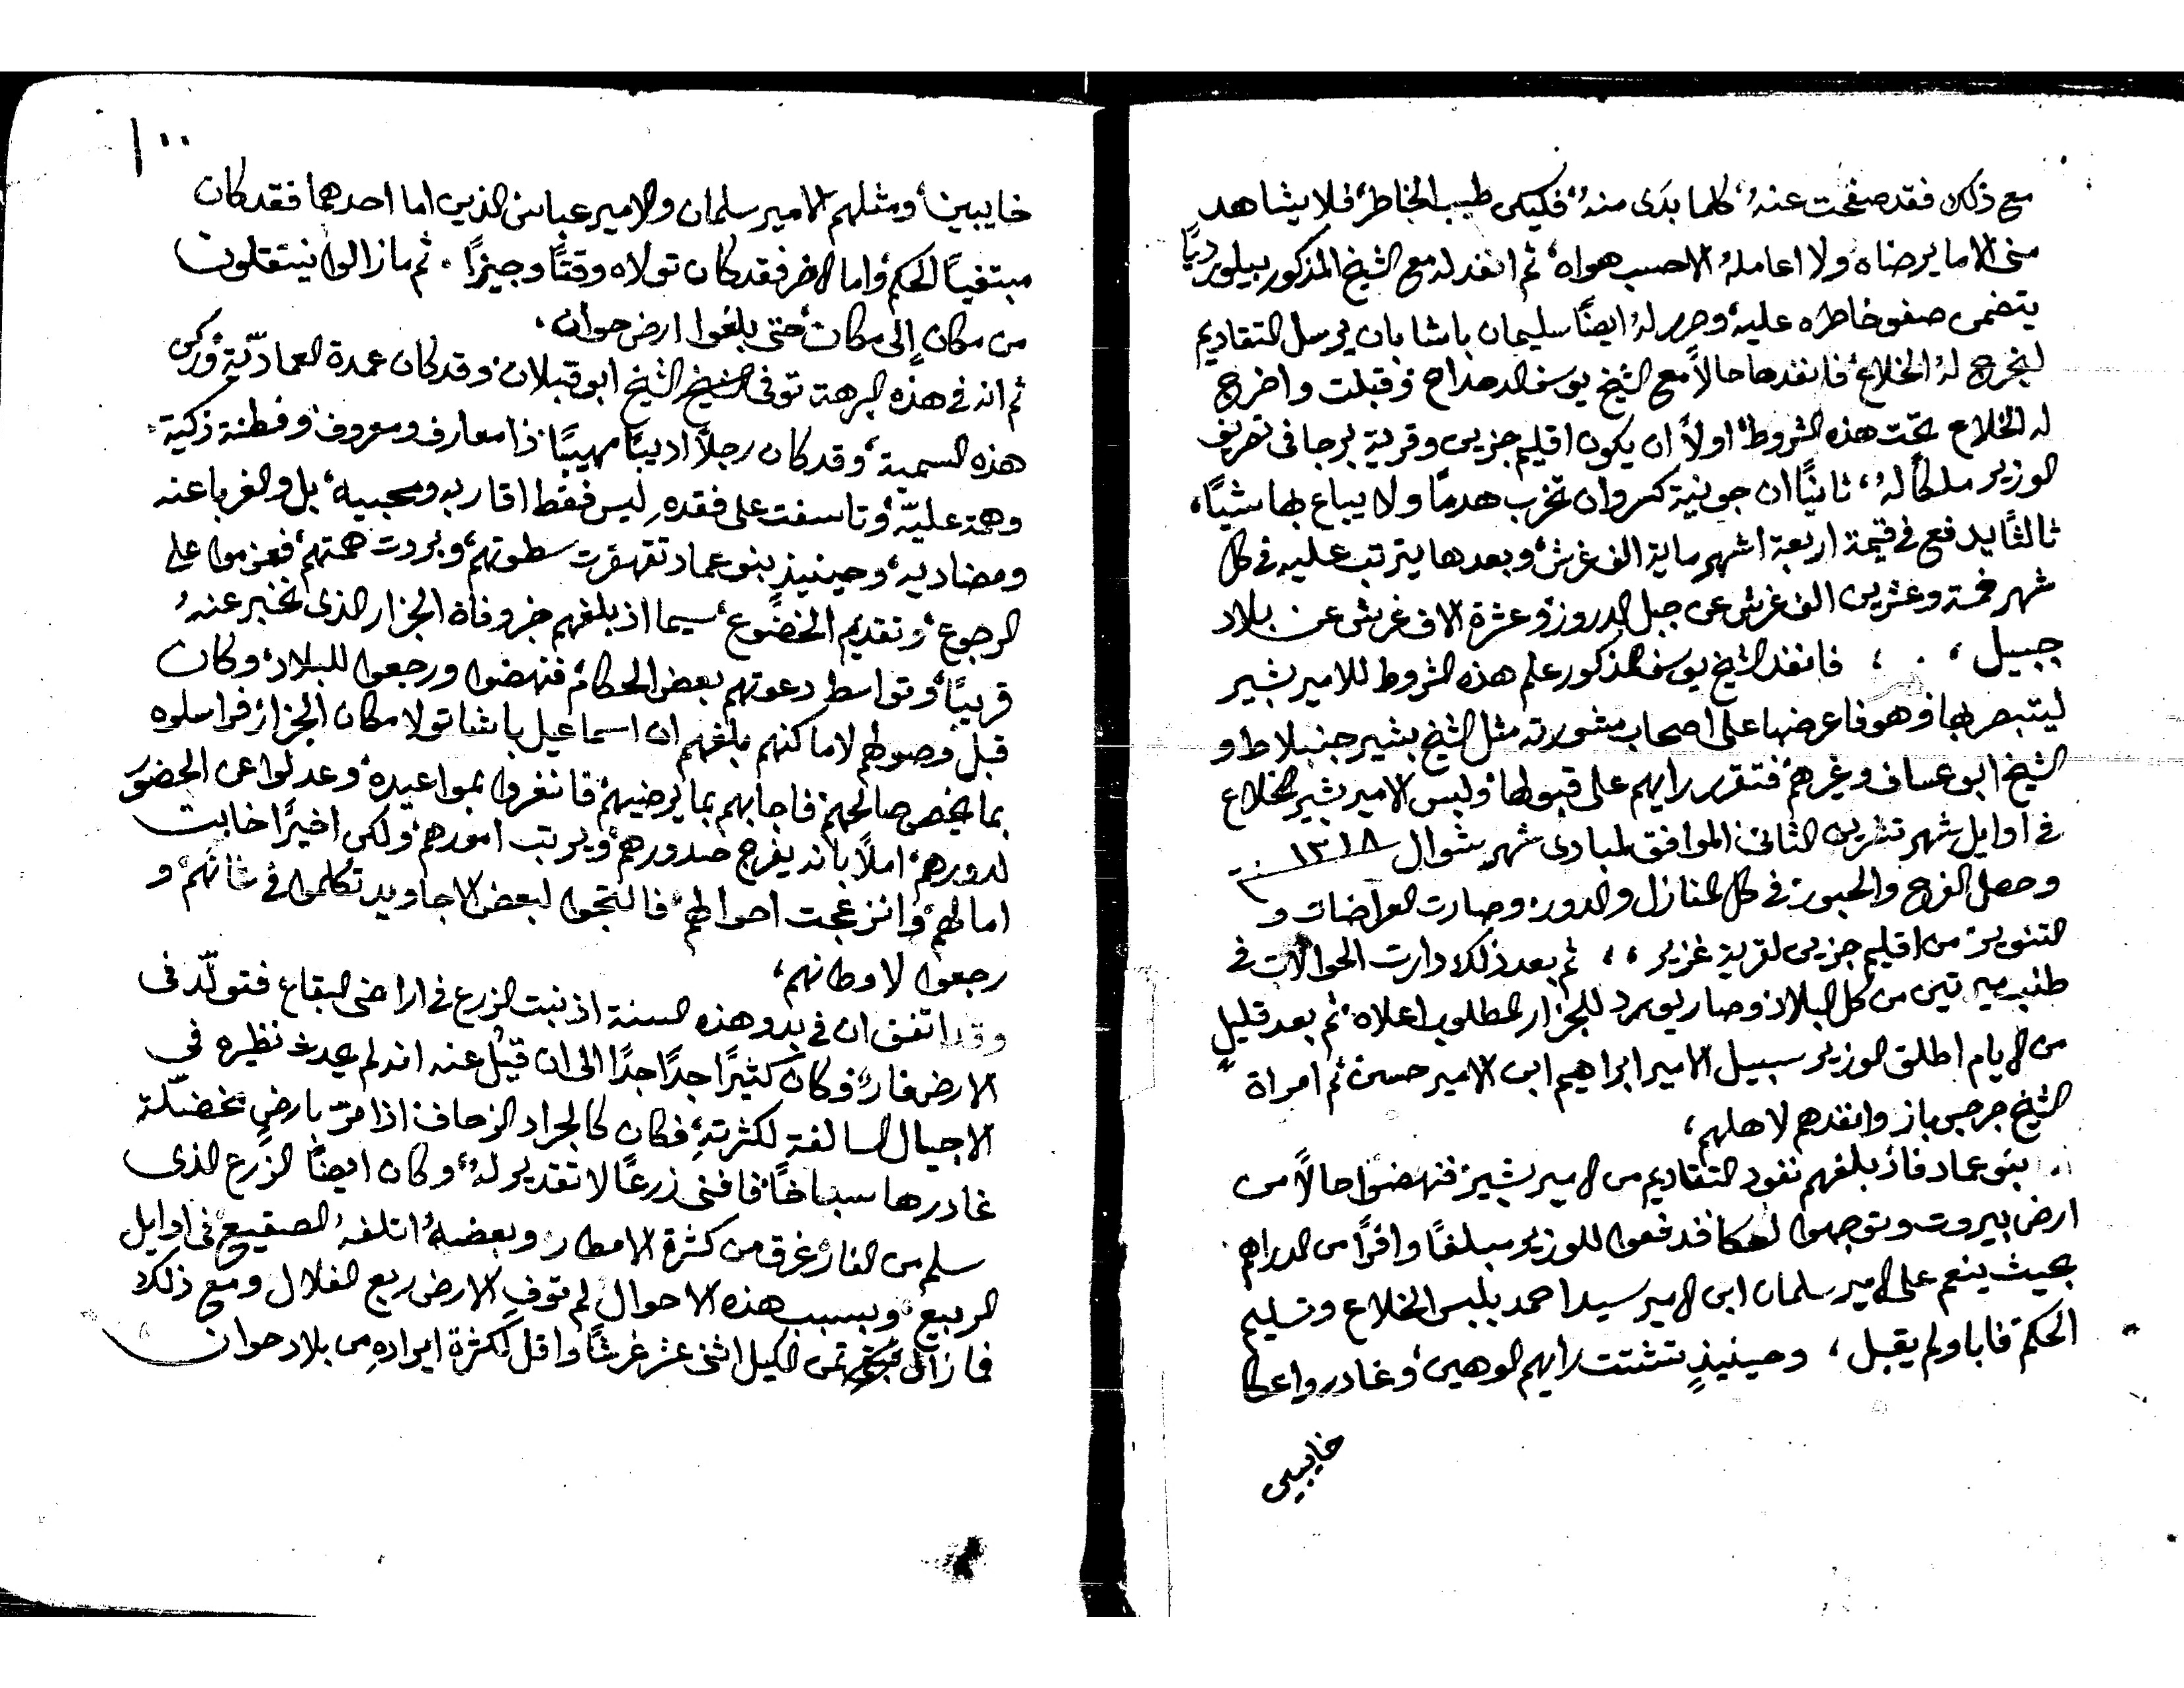 مع ذلك فقد صفحت عنهُ، كلما بدَى منهُ، فليكن طيب الخاطر، فلا يشاهد
منى الا ما يرضاه ولا اعاملهُ الا حسب هواه، ثم انفد له مع الشيخ المذكور بيلورديًا
يتضمن صفو خاطره عليه، وحرر لهُ ايضًا سليمان باشا بان يرسل التقاديم
لتخرج لهُ الخلاع، فانفدها حالاً مع الشيخ يوسف الدحداح، فقبلت واخرج
له الخلاع تحت هذه الشروط، اولاً ان يكون اقليم جزين وقرية برجا فى تصريف
الوزير ملكًا لهُ، ثانيًا ان جونية كسروان تخرب هدمًا ولا يباع بها شيًا،
ثالثًا يدفع فى قيمة اربعة اشهر ماية الف غرش، وبعدها يترتب عليه فى كل
شهر خمسة وعشرين الف غرش عن جبل الدروز، وعشرة الاف غرش عن بلاد
جبيل، فانفد الشيخ يوسف المذكور علم هذه الشروط للامير بشير
ليتبصر بها، وهو فاعرضها على اصحاب مشورته مثل الشيخ بشير جنبلاط و
الشيخ ابو عساف وغيرهم، فتقرر رايهم على قبولها، ولبس الامير بشير الخلاع
فى اوايل شهر تشرين الثانى الموافق لمبادى شهر شوال ١٢١٨ سنة
وحصل الفرح والحبور فى كل المنازل والدور، وصارت العراضات و
التنوير من اقليم جزين لقرية غزير،، ثم بعد ذلك دارت الحوالات فى
طلب ميرتين من كل البلاد، وصار يورد للجزار المطلوب اعلاه، ثم بعد قليلٍ
من الايام اطلق الوزير سبيل الامير ابراهيم ابن الامير حسن، ثم امراة
الشيخ جرجس باز وانفدهم لاهلهم،
بنو عماد فاذ بلغهم نفود التقاديم من الامير بشير، فنهضوا حالاً من
ارض بيروت وتوجهوا لعكا، فدفعوا للوزير مبلغًا وافرًا من الدراهم
بحيث ينعم على الامير سلمان ابن الامير سيد احمد بلبس الخلاع وتسليم
الحكم، فابا ولم يقبل، وحينيذٍ تشتتت رايهم الوهين، وغادروا عكا
خايبين
١٠٠
خايبين، ومثلهم الامير سلمان والامير عباس الذين اما احدهما فقد كان
مبتغيًا الحكم، واما الاخر فقد كان تولاه وقتًا وجيزًا. ثم ما زالوا ينتقلون
من مكان إلى مكان، حتى بلغوا ارض حوان،
ثم انه فى هذه البرهة توفى الشيخ ابو قبلان، وقد كان عمدة العمادّية، وركن
هذه السمية، وقد كان رجلاً اديبًا مهيبًا ذا معارف ومعروف، وفطنة زكية
وهمة عليّة، وتاسفت على فقدهِ ليس فقط اقاربه ومحبيه، بل والغربا عنه
ومضاديه، وحينيذٍ بنو عماد تقهقرت سطوتهم، وبردت همتهم، فعزموا على
الرجوع، وتقديم الخضُوع، سيما اذ بلغهم خبر وفاة الجزار الذى نخبر عنهُ
قريبًا، وتواسط دعوتهم بعض الحكام، فنهضوا ورجعوا للبلاد، وكان
قبل وصولهم لاماكنهم بلغهم ان اسماعيل باشا تولا مكان الجزار، فراسلوه
بما يخص صالحهم، فاجابهم بما يرضيهم، فانغروا بمواعيده، وعدلوا عن الحضور
لدورهم، املاً بانه يفرج صدورهم، ويرتب امورهم، ولكن اخيرًا خابت
امالهم، وانزعجت احوالهم، فالتجوا لبعض الاجاويد تكلموا فى شانهم، و
رجعوا لاوطانهم،
وقد اتفق ان فى بدو هذه السنة اذ نبت الزرع فى اراضى البقاع، فتولّد فى
الارض فار، وكان كثيرًا جدًا جدًا الى ان قيل عنه انه لم يحدث نظيره فى
الاجيال السالفة لكثرتهِ، فكان كالجراد الزحاف، اذا مرّ بارضٍ مخضلّة
غادرها سباخًا، فافنى زرعًا لا تقدير لهُ، وكان ايضًا الزرع الذى
سلم من الفار، غرق من كثرة الامطار، وبعضهُ اتلفهُ الصقيع فى اوايل
الربيع، وبسبب هذه الاحوال لم توفِ الارض ربع الغلال ومع ذلك
فما زال ثمن الكيل اثنى عشر غرشًا واقل لكثرة ايرادهِ من بلاد حوان